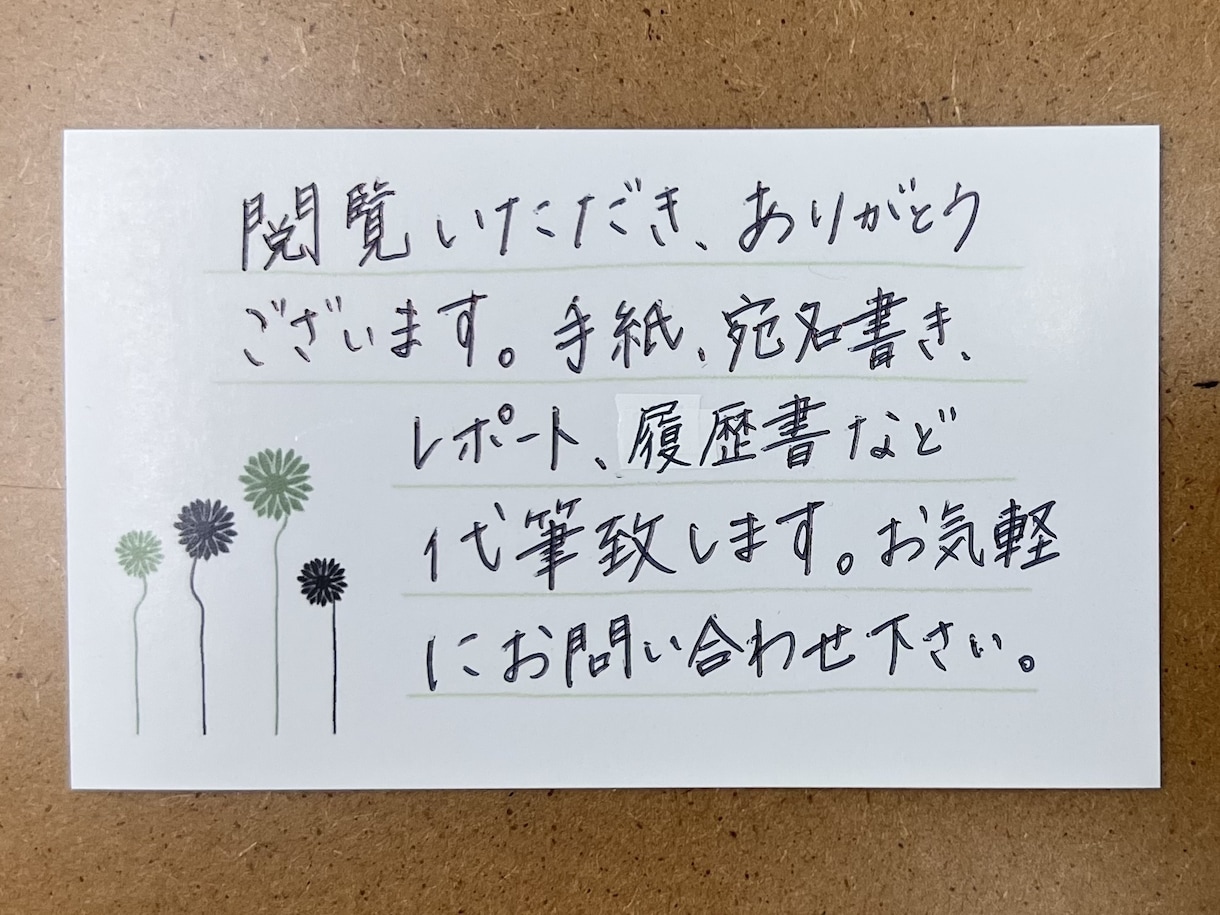 閲覧いただき、ありがとう
ございます。手紙、宛名書き、
レポート、履歴書など
代筆致します。お気軽
にお問い合わせ下さい。